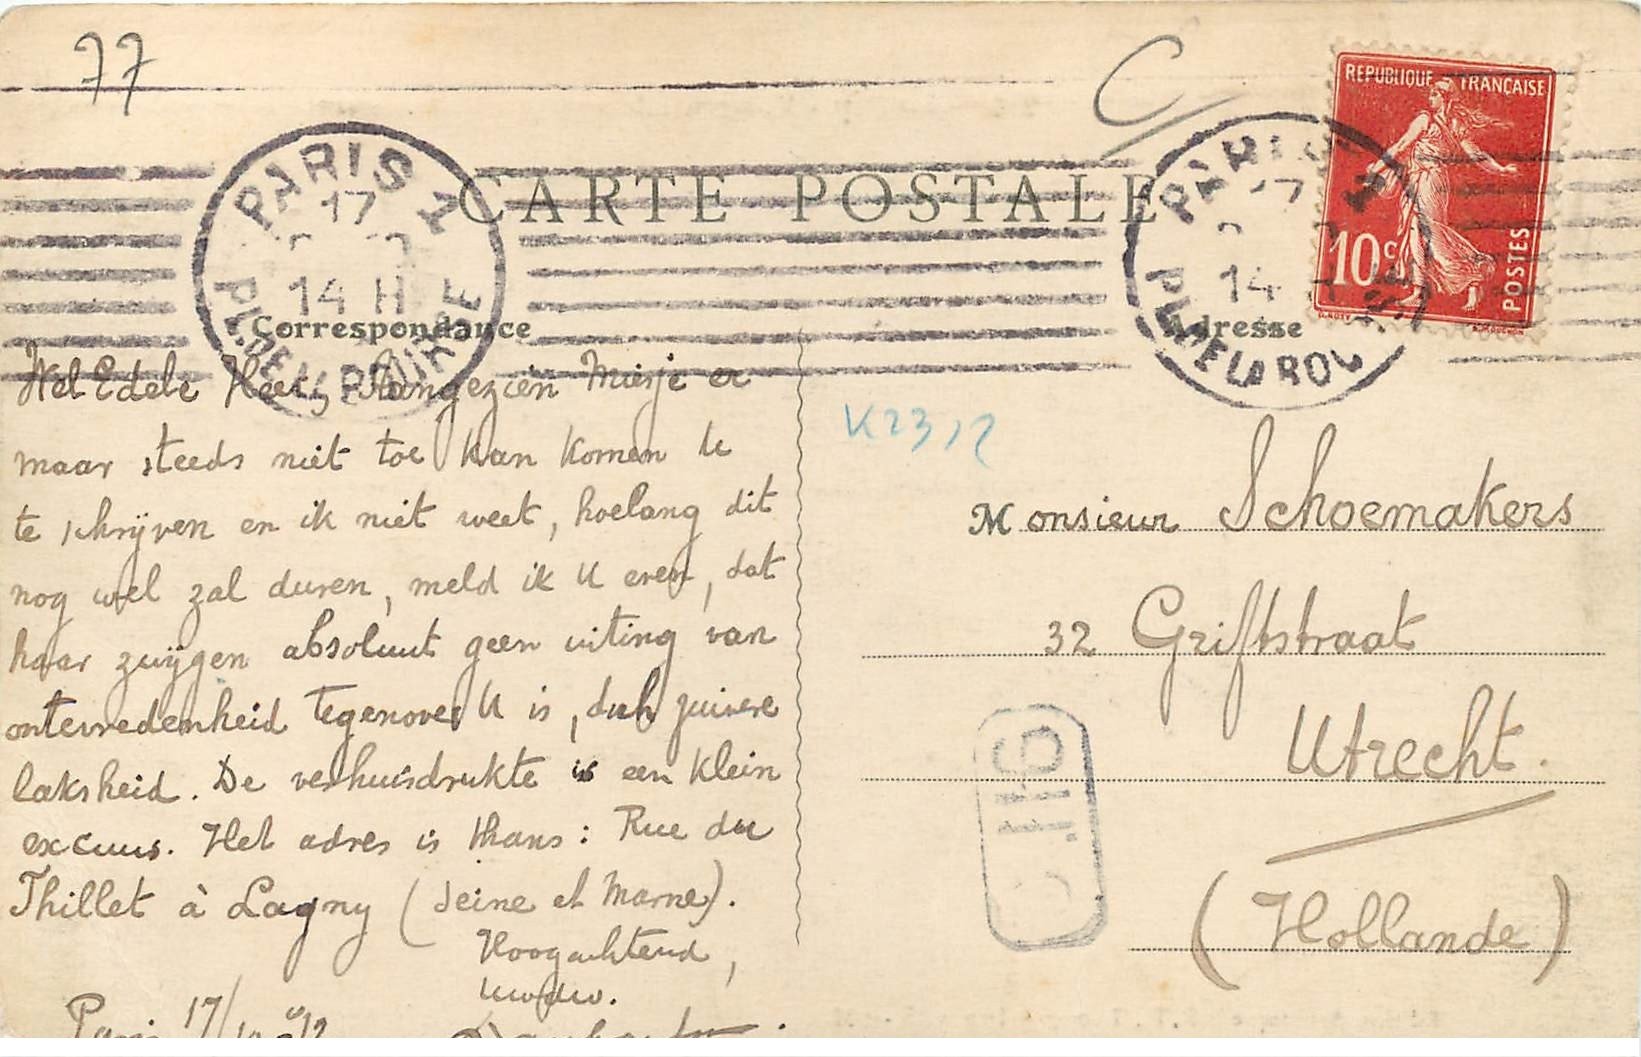 77
C
REPUBLIQUE FRANÇAISE
10c
POSTES
PARIS
17
14 H
CARTE POSTALE
Correspondance
Adresse
Wel Edele Heer, Aangezien Miesje er
maar steeds niet toe kan komen U
te schrijven en ik niet weet, hoelang dit
nog wel zal duren, meld ik U even, dat
haar zwijgen absoluut geen uiting van
ontevredenheid tegenover U is, doch zuivere
laksheid. De verhuisdrukte is een klein
excuus. Het adres is thans: Rue du
Thillet à Lagny (Seine et Marne).
Hoogachtend,
uwdw.
Paris 17/
K23,2
Monsieur Schoemakers
32 Griftstraat
Utrecht.
(Hollande)